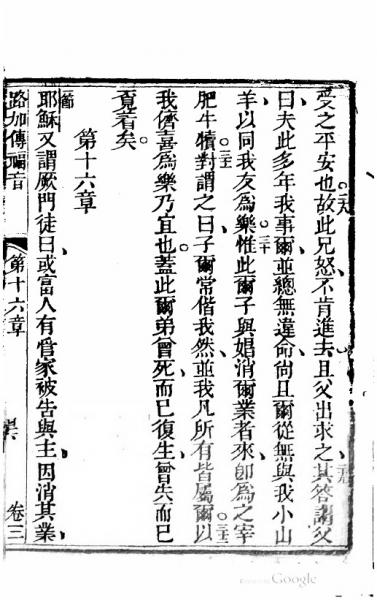 受之平安也。二八故此兄怒不肯進去、且父出求之、二九其答謂父
曰、夫此多年我事爾、並總無違命、尚且爾從無與我小山
羊、以同我友為樂、三十惟此爾子與娼消爾業者來、卽為之宰
肥牛犢、三一對謂之曰、子爾常偕我、然並我凡所有皆屬爾、三二以
我儕喜為樂乃宜也。蓋此爾弟曾死而已復生、曾失而已
覓著矣。
第十六章
一節耶穌又謂厥門徒曰、或富人有管家被告與主、因消其業、
路加傳福音
第十六章
卷三
Google